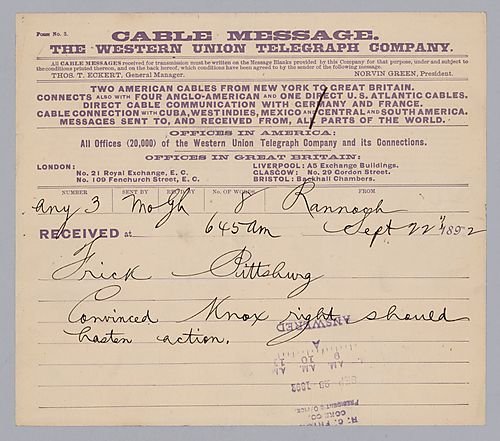 FORM No. 3.
CABLE MESSAGE.
THE WESTERN UNION TELEGRAPH COMPANY.
All CABLE MESSAGES received for transmission must be written on the Message Blanks provided by this Company for that purpose, under and subject to
the conditions printed thereon, and on the back hereof, which conditions have been agreed to by the sender of the following message.
THOS. T. ECKERT, General Manager. NORVIN GREEN, President.
TWO AMERICAN CABLES FROM NEW YORK TO GREAT BRITAIN.
CONNECTS ALSO WITH FOUR ANGLO-AMERICAN AND ONE DIRECT U.S. ATLANTIC CABLES.
DIRECT CABLE COMMUNICATION WITH GERMANY AND FRANCE.
CABLE CONNECTION WITH CUBA, WEST INDIES, MEXICO AND CENTRAL AND SOUTH AMERICA.
MESSAGES SENT TO, AND RECEIVED FROM, ALL PARTS OF THE WORLD.
OFFICES IN AMERICA:
All Offices (20,000) of the Western Union Telegraph Company and its Connections.
OFFICES IN GREAT BRITAIN:
LONDON: LIVERPOOL: A5 Exchange Buildings.
No. 21 Royal Exchange, E. C. GLASGOW: No. 29 Gordon Street.
No. 109 Fenchurch Street, E. C. BRISTOL: Backhall Chambers.
NUMBER SENT BY REC'D BY No. OF WORDS FROM
any 3 Mo Gh 8 Rannoch
RECEIVED at 645am Sept 22" 1892
Frick Pittsburg
Convinced Knox right should
hasten action.
ANSWERED
AM AM AM
9 10 12
SEP 23 1892
PRESIDENT'S OFFICE.
COKE CO.
H. C. FRICK